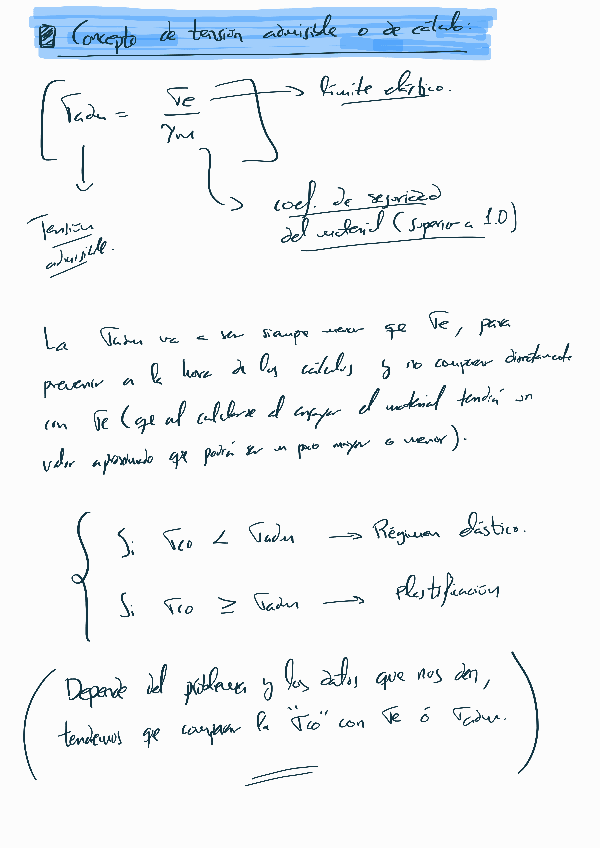 Concepto de tensión admisible o de cálculo:
σadm = σe / γm → límite elástico.
coef. de seguridad
del material (superior a 1.0)
Tensión
admisible.
La σadm va a ser siempre menor que σe, para
prevenir a la hora de los cálculos y no comparar directamente
con σe (que al calcularse al ensayar el material tendrá un
valor aproximado que podrá ser un poco mayor o menor).
Si σco < σadm → Régimen elástico.
Si σco ≥ σadm → Plastificación
(Depende del problema y los datos que nos den,
tendremos que comparar la "σco" con σe ó σadm.)